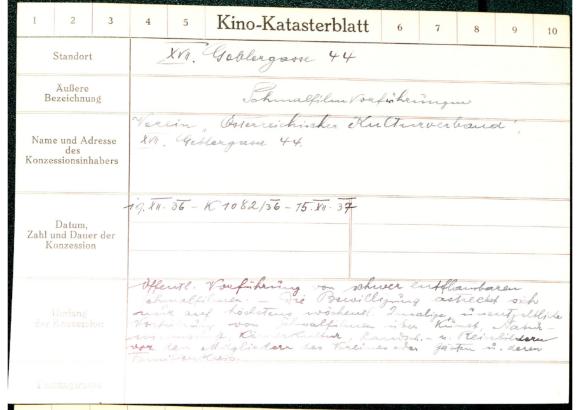 1 2 3 4 5 Kino-Katasterblatt 6 7 8 9 10
Standort
XVII. Geblergasse 44
Äußere
Bezeichnung
Schmalfilmvorführungen
Name und Adresse
des
Konzessionsinhabers
Verein „Österreichischer Kulturverband",
XVII. Geblergasse 44.
Datum,
Zahl und Dauer der
Konzession
XII. 36 - K 1082/36 - 15. XII. 37
Umfang
der Konzession
Öffentl. Vorführung von schwer entflammbaren
Schmalfilmen. - Die Bewilligung erstreckt sich
nur auf höchstens wöchentl. 2malige, unentgeltliche
Vorführung von Schmalfilmen über Kunst, Natur-
Landsch.- u. Reisebildern
vor den Mitgliedern des Vereines oder Gästen u. deren
Familienkreis.
Fassungsraum